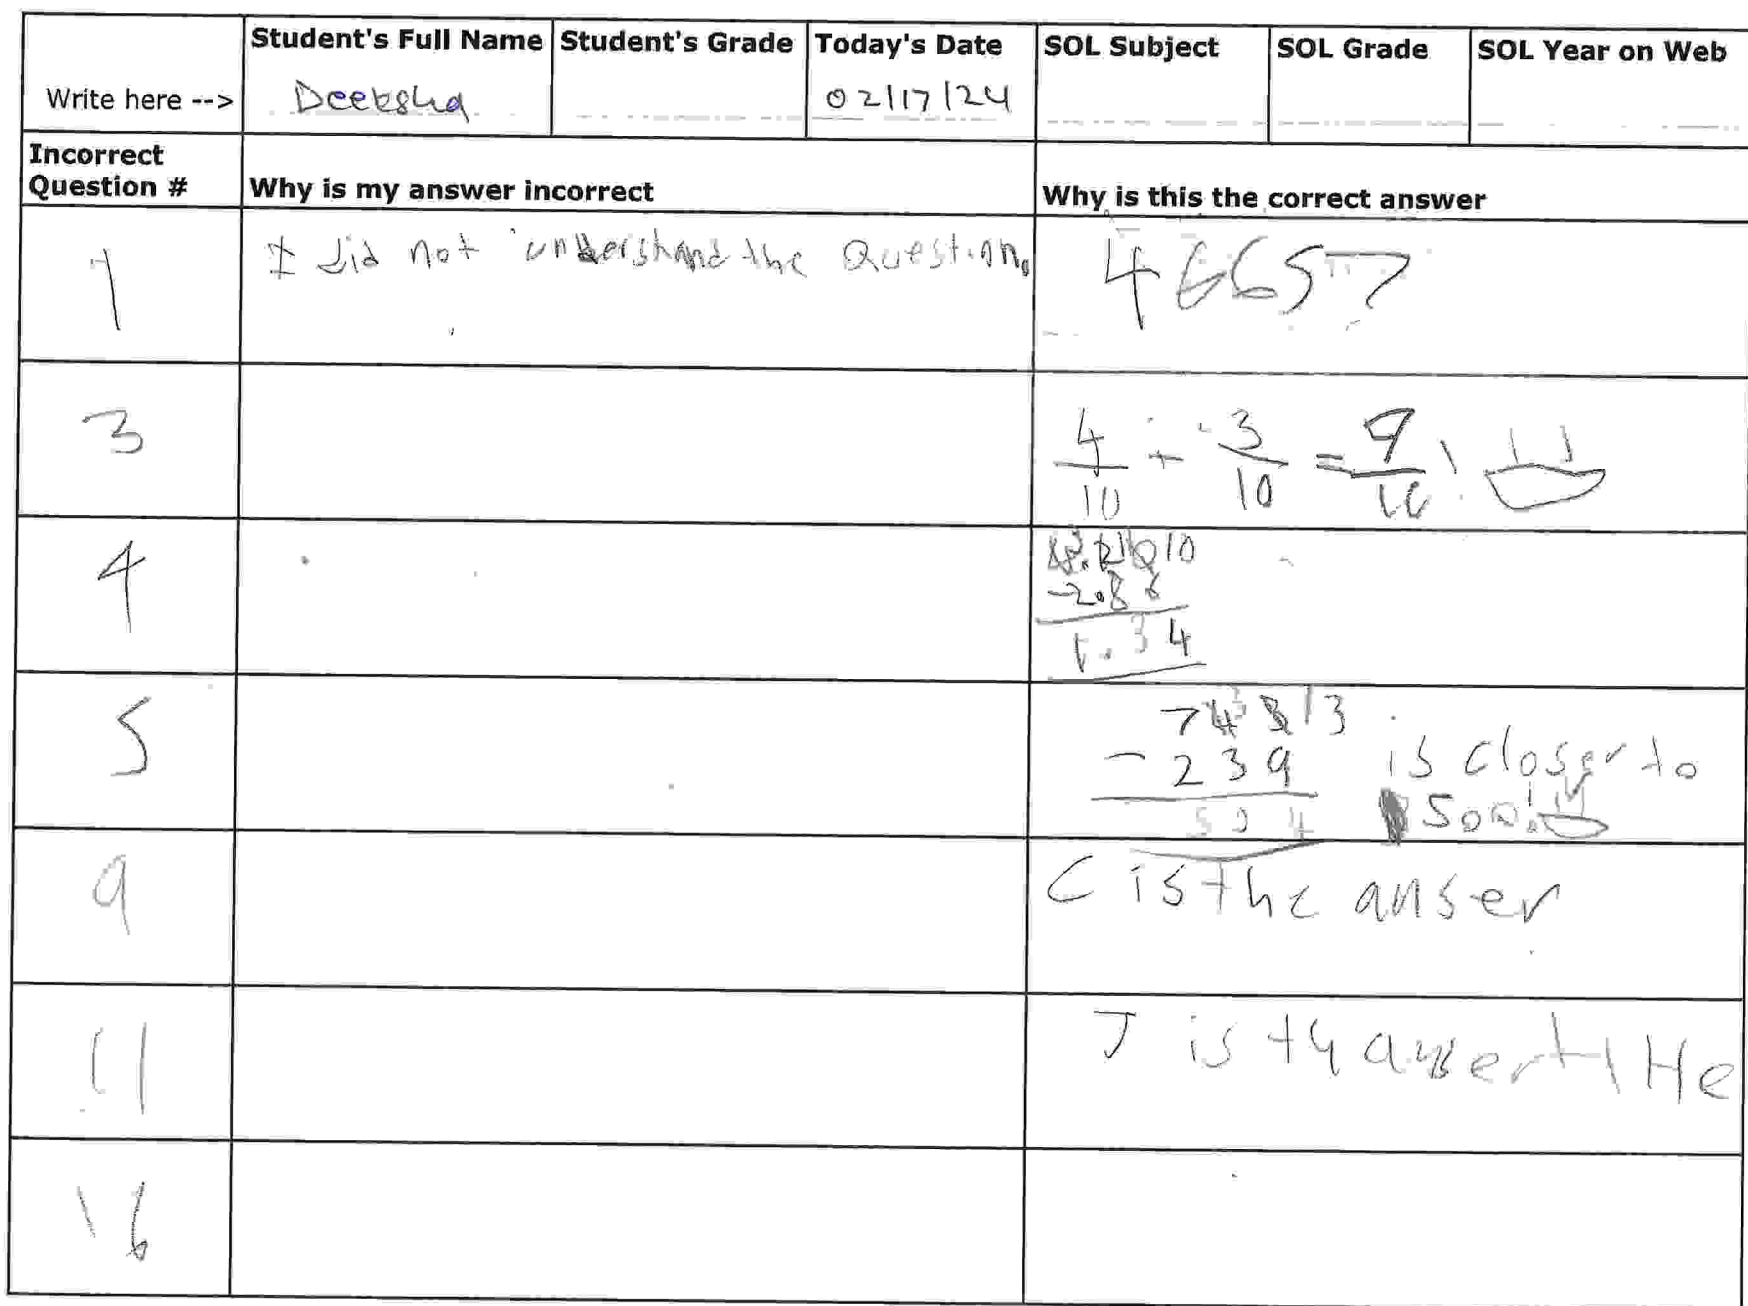 Student's Full Name Student's Grade Today's Date SOL Subject SOL Grade SOL Year on Web
Write here --> Deeksha 02/17/24
Incorrect
Question # Why is my answer incorrect Why is this the correct answer
1 I did not understand the Question. 46657
3 4/10 + 3/10 = 9/10!
4
-2.86
1.34
5 743 13
- 239 is closer to
504 500!
9 C is the anser
11 J is th
16